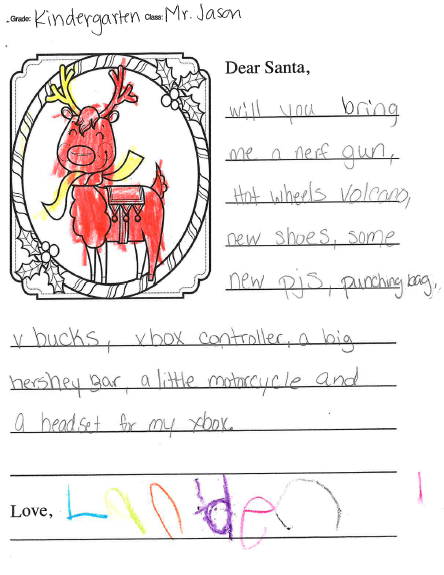 Grade: Kindergarten Class: Mr. Jason
Dear Santa,
will you bring
me a nerf gun,
Hot wheels volcano,
new shoes, some
new pjs, punching bag,
v bucks, xbox controller, a big
hershey Bar, a little motorcycle and
a headset for my xbox.
Love, Landen